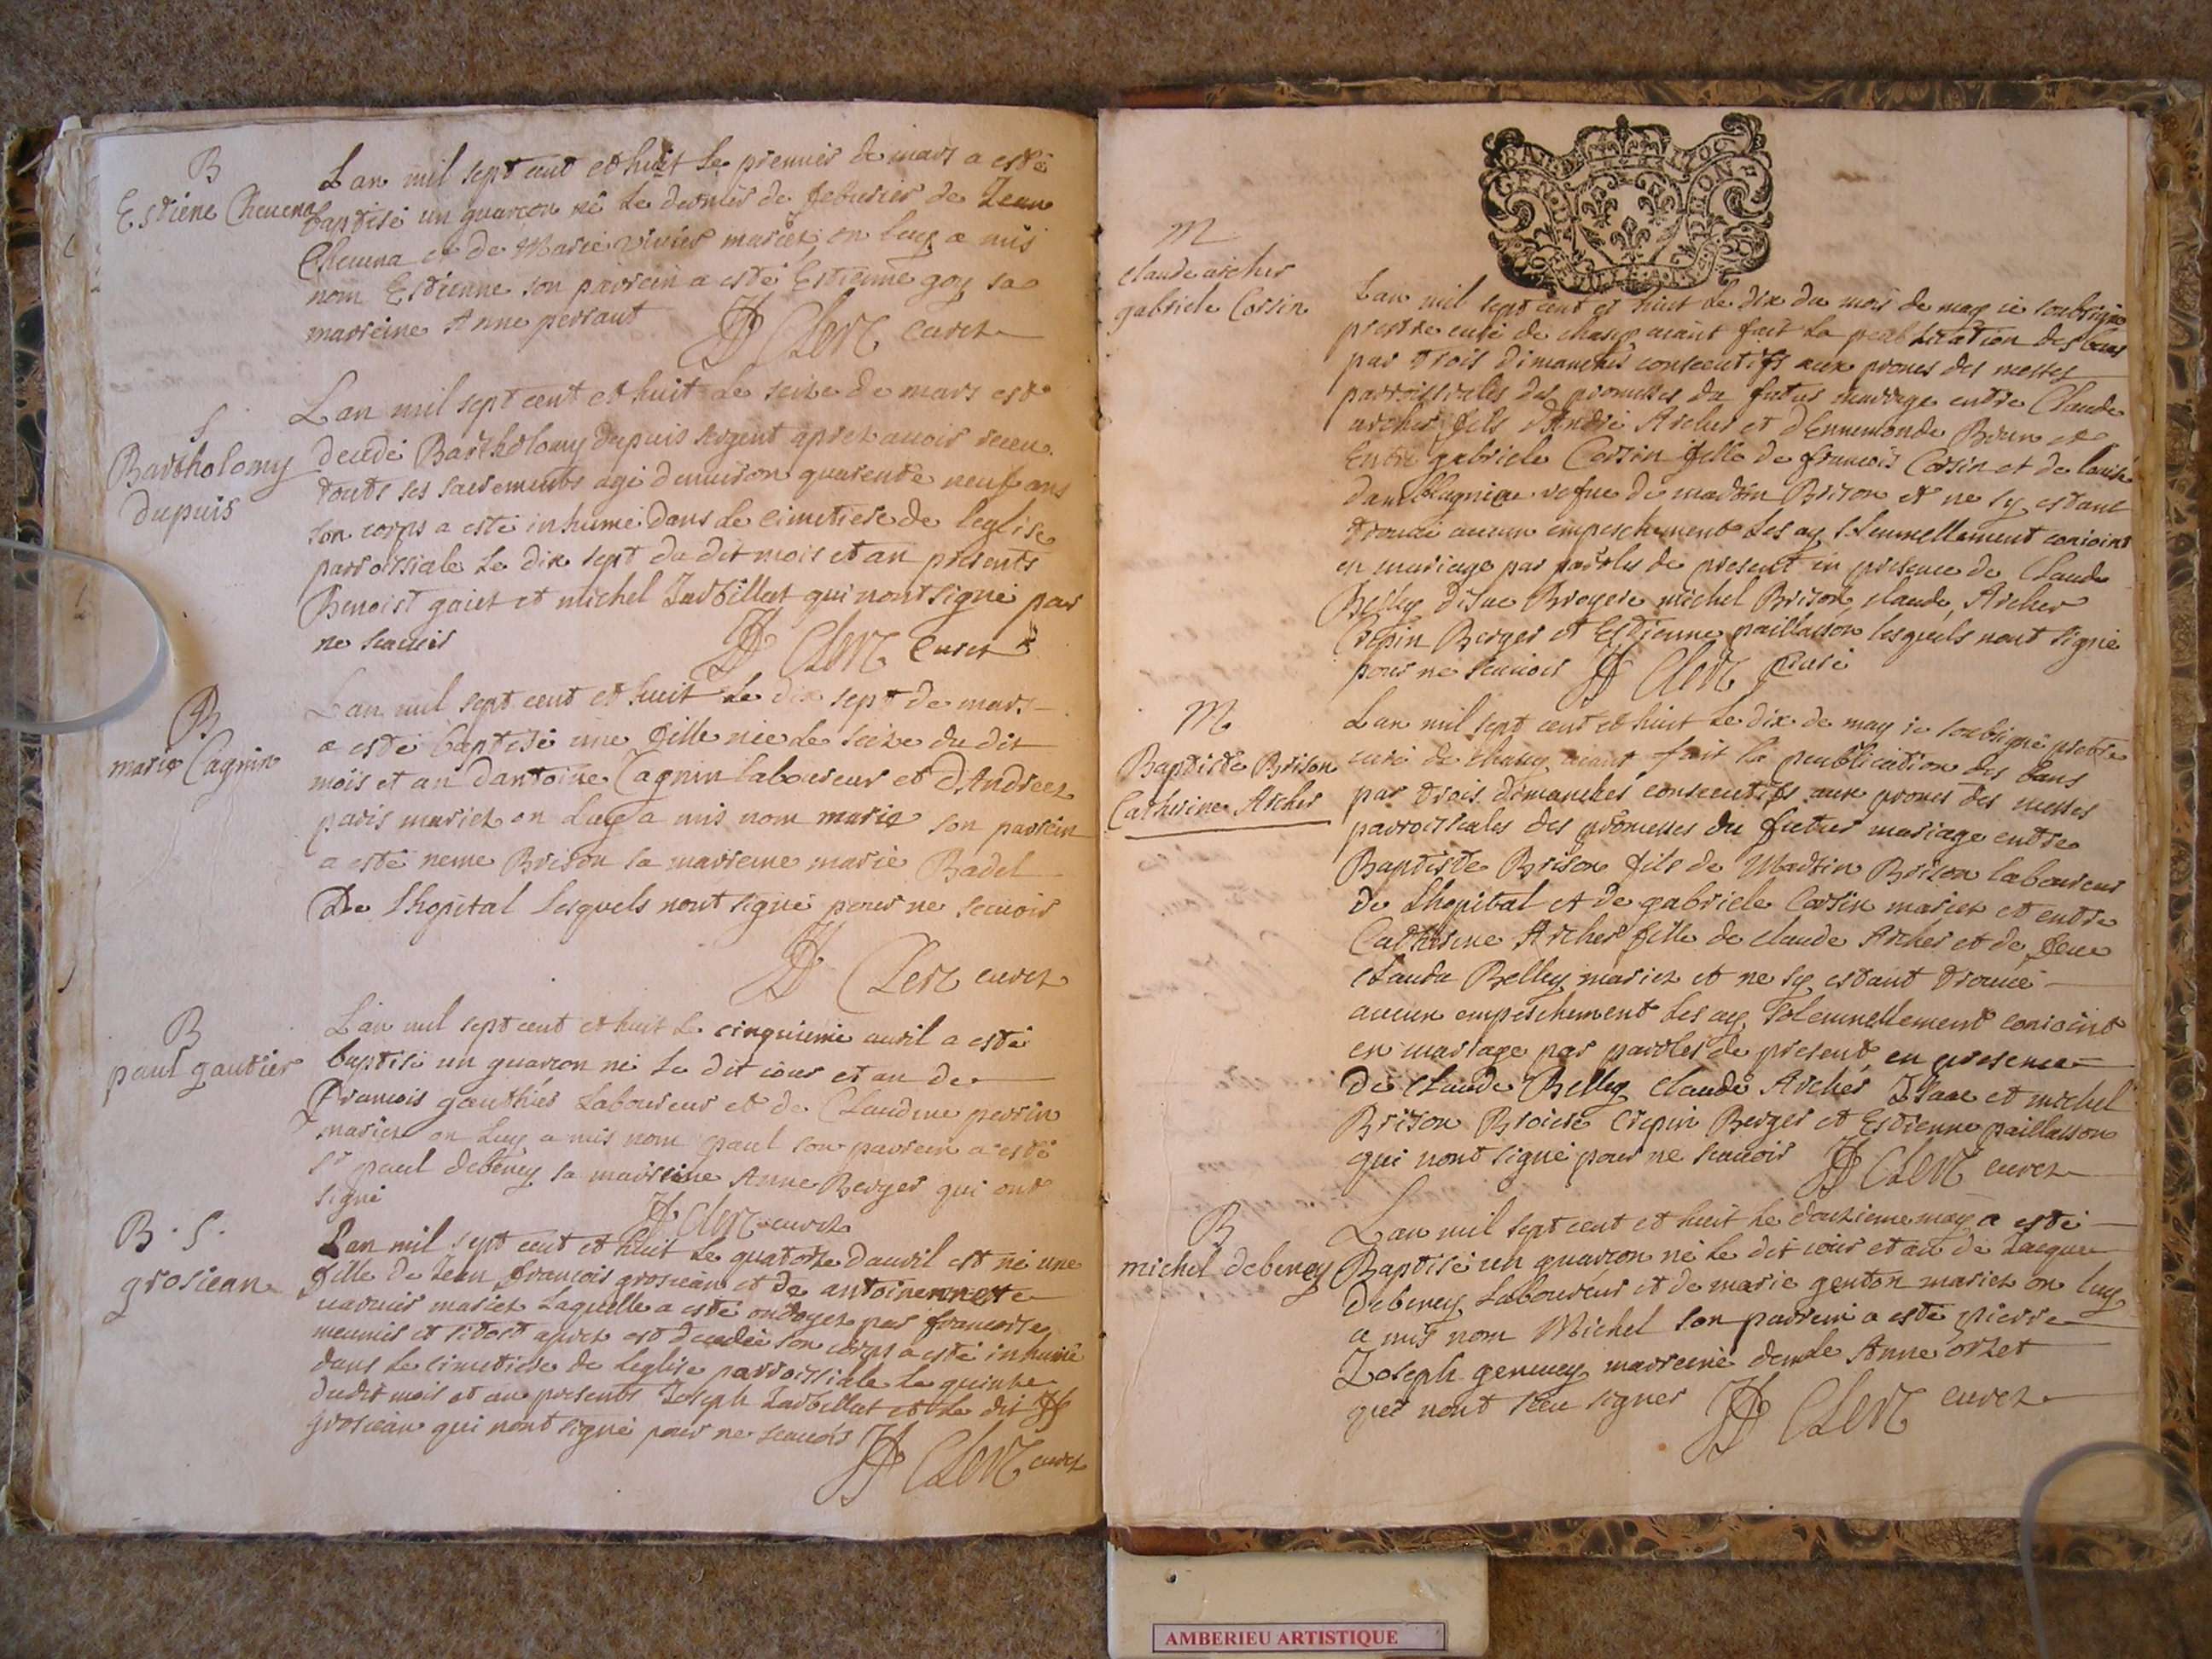 B
Estiene Cheuena
Lan mil sept cent et huit le premier de mars a esté
baptisé un guarcon né le dernier de feburier de Jean
Cheuena et de Marie viuier mariez, on luy a mis
nom Estienne son parrein a esté Estienne goy sa
marreine Anne perraut JJ Clerc curez
S
Bartholomy
dupuis
Lan mil sept cent et huit le seize de mars est
decedé Bartholomy dupuis sergent aprez auoir receu
touts ses sacrements agé denuiron quarente neuf ans
son corps a esté inhumé dans le cimetiere de leglise
parroissiale le dix sept du dit mois et an presents
Benoist goiet et michel Jarbillat qui nont signé par
ne scauoir JJ Clerc Curez
B
marie Cagnin
Lan mil sept cent et huit le dix sept de mars
a esté baptisé une fille née le seize du dit
mois et an dantoine Cagnin laboureur et dAndreez
paris mariez on luy a mis nom marie son parrein
a esté neme Brison sa marreine marie Badel
De Lhopital lesquels nont signé pour ne scauoir
JJ Clerc curez
B
paul gautier
Lan mil sept cent et huit le cinquieme auril a esté
baptisé un guarcon né le dit iour et an de
Francois gauthier laboureur et de Claudine perrin
mariez on luy a mis nom paul son parrein a esté
Sr paul debeney sa marreine Anne Berger qui ont
signé JJ Clerc curez
B. S.
grosiean
Lan mil sept cent et huit le quatorze dauril est né une
fille de Jean francois grosiean et de antoinennette
mariez laquelle a esté ondoyez par francoise
meunir et sitost aprez est decedée son corps a esté inhumé
dans le cimetiere de leglise parroissiale le quinze
dudit mois et an presents Joseph Jarbillat et le dit JJ
grosiean qui nont signé pour ne scauoir JJ Clerc curez
GEN. D.
M
claude archer
gabriele Corsin
Lan mil sept cent et huit le dix du mois de may ie soubsigné
prestre curé de chasey aiant fait la publication des bans
par trois dimanches consecutifs aux prones des messes
parroissiales des promesses du futur mariage entre Claude
archer fils dAndré Archer et dEnnemonde Brun et
Entre gabriele Corsin fille de francois Corsin et de louise
damblagnieu vefue de martin Brison et ne sy estant
trouué aucun empeschement les ay solennellement conioint
en mariage par paroles de present en presence de Claude
Belley disac Broyere michel Brison claude Archer
Crepin Berger et Estienne paillasson lesquels nont signé
pour ne scauoir JJ Clerc Curé
M
Baptiste Brison
Catherine Archer
Lan mil sept cent et huit le dix de may ie soubsigné prestre
curé de chasey aiant fait la peublication des bans
par trois dimanches consecutifs aux prones des messes
parroissiales des promesses du futur mariage entre
Baptiste Brison fils de Martin Brison laboureur
de Lhopital et de gabriele Corsin mariez et entre
Catherine Archer fille de claude Archer et de feue
claude Belley mariez et ne sy estant trouué
aucun empeschement les ay solemnellement conioint
en mariage par paroles de present en presence
de claude Belley claude Archer Isaac et michel
Brison Broiere Crepin Berger et Estienne paillasson
qui nont signé pour ne scauoir JJ Clerc curez
B
michel debeney
Lan mil sept cent et huit le douzieme may a esté
Baptisé un guarcon né le dit iour et an de Jacque
debeney laboureur et de marie genton mariez on luy
a mis nom Michel son parrein a esté pierre
Joseph genuey marreine demlle Anne orset
qui nont sceu signer JJ Clerc curez
AMBERIEU ARTISTIQUE